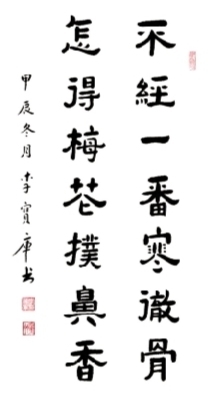 不經一番寒徹骨
怎得梅花撲鼻香
甲辰冬月李寶庫书